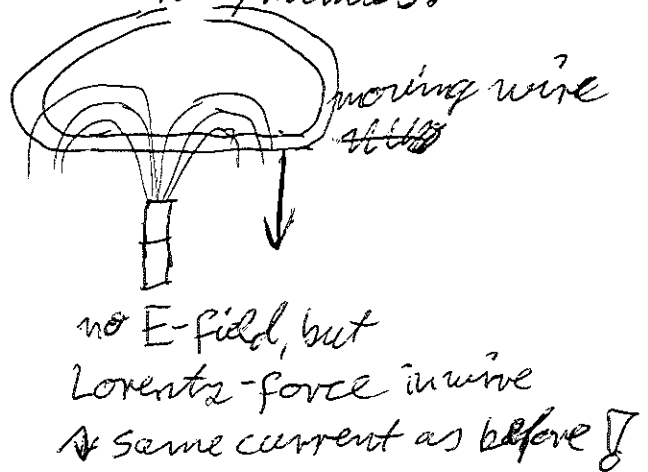 moving wire
no E-field, but
Lorentz-force in wire
same current as before!